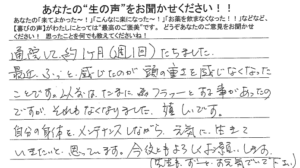 あなたの“生の声”をお聞かせください！！
あなたの「来てよかった～！」「こんなに楽になった～！」「お薬を飲まなくなった！！」などなど、
【喜びの声】がわたしにとっては“最高のご褒美”です。どうぞあなたのご意見をお聞かせ
ください！ 思ったことを何でも教えてくださいね！
通院して、約1ヶ月（週1回）たちました。
最近、ふっと感じたのが頭の重さを感じなくなった
ことです。以前はたまにフラーッとする事があったの
ですが、それもなくなりました。嬉しいです。
自分の身体を、メンテナンスしながら、元気に生きて
いきたいと思っています。今後もよろしくお願いします。
（先生もずーっとお元気でいて下さい